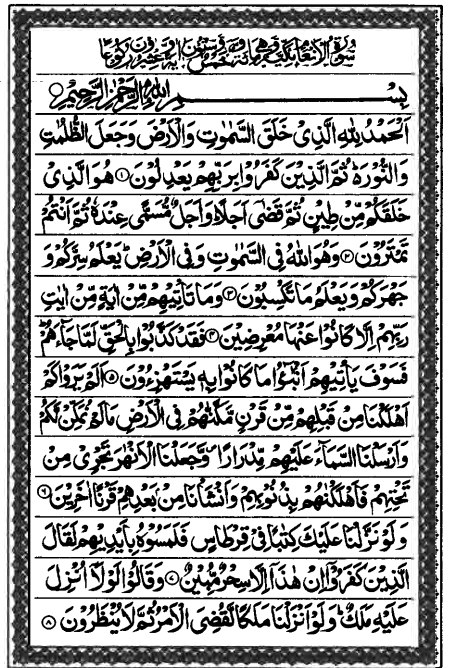 سورة الانعام مكية وهي مائة وخمس وستون آية وعشرون ركوعا
بِسْمِ اللهِ الرَّحْمٰنِ الرَّحِيْمِ ○
اَلْحَمْدُ لِلّٰهِ الَّذِیْ خَلَقَ السَّمٰوٰتِ وَالْاَرْضَ وَجَعَلَ الظُّلُمٰتِ
وَالنُّوْرَ ۬ؕ ثُمَّ الَّذِیْنَ كَفَرُوْا بِرَبِّهِمْ یَعْدِلُوْنَ ۱ هُوَ الَّذِیْ
خَلَقَكُمْ مِّنْ طِیْنٍ ثُمَّ قَضٰۤی اَجَلًا ؕ وَاَجَلٌ مُّسَمًّی عِنْدَهٗ ثُمَّ اَنْتُمْ
تَمْتَرُوْنَ ۲ وَهُوَ اللهُ فِی السَّمٰوٰتِ وَفِی الْاَرْضِ ؕ یَعْلَمُ سِرَّكُمْ وَ
جَهْرَكُمْ وَیَعْلَمُ مَا تَكْسِبُوْنَ ۳ وَمَا تَاْتِیْهِمْ مِّنْ اٰیَةٍ مِّنْ اٰیٰتِ
رَبِّهِمْ اِلَّا كَانُوْا عَنْهَا مُعْرِضِیْنَ ۴ فَقَدْ كَذَّبُوْا بِالْحَقِّ لَمَّا جَآءَهُمْ ؕ
فَسَوْفَ یَاْتِیْهِمْ اَنْۢبٰٓؤُا مَا كَانُوْا بِهٖ یَسْتَهْزِءُوْنَ ۵ اَلَمْ یَرَوْا كَمْ
اَهْلَكْنَا مِنْ قَبْلِهِمْ مِّنْ قَرْنٍ مَّكَّنّٰهُمْ فِی الْاَرْضِ مَا لَمْ نُمَكِّنْ لَّكُمْ
وَاَرْسَلْنَا السَّمَآءَ عَلَیْهِمْ مِّدْرَارًا ۪ وَّجَعَلْنَا الْاَنْهٰرَ تَجْرِیْ مِنْ
تَحْتِهِمْ فَاَهْلَكْنٰهُمْ بِذُنُوْبِهِمْ وَاَنْشَاْنَا مِنْۢ بَعْدِهِمْ قَرْنًا اٰخَرِیْنَ ۶
وَلَوْ نَزَّلْنَا عَلَیْكَ كِتٰبًا فِیْ قِرْطَاسٍ فَلَمَسُوْهُ بِاَیْدِیْهِمْ لَقَالَ
الَّذِیْنَ كَفَرُوْۤا اِنْ هٰذَاۤ اِلَّا سِحْرٌ مُّبِیْنٌ ۷ وَقَالُوْا لَوْلَاۤ اُنْزِلَ
عَلَیْهِ مَلَكٌ ؕ وَلَوْ اَنْزَلْنَا مَلَكًا لَّقُضِیَ الْاَمْرُ ثُمَّ لَا یُنْظَرُوْنَ ۸